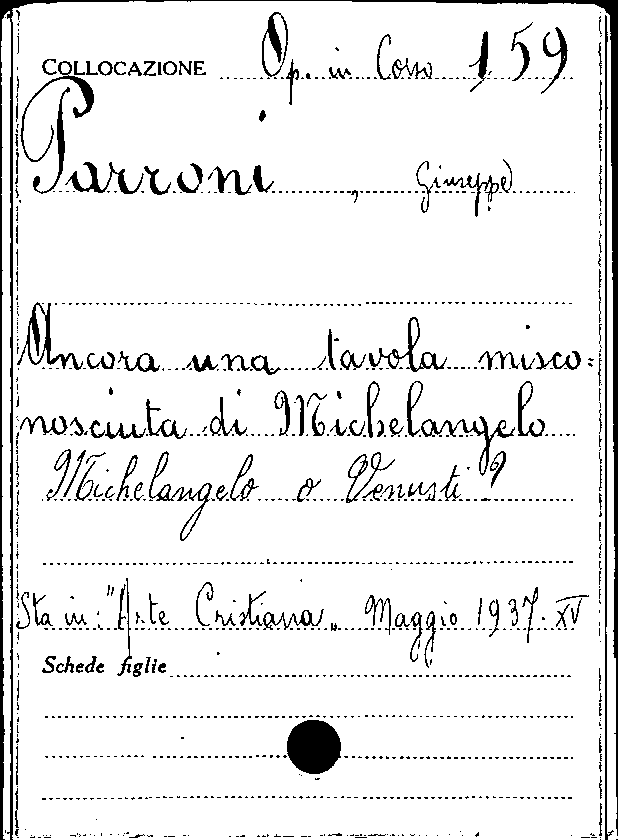 COLLOCAZIONE Op. in Corso 159
Parroni, Giuseppe
Ancora una tavola misco=
nosciuta di Michelangelo
Michelangelo o Venusti?
Sta in: "Arte Cristiana„ Maggio 1937. XV
Schede figlie